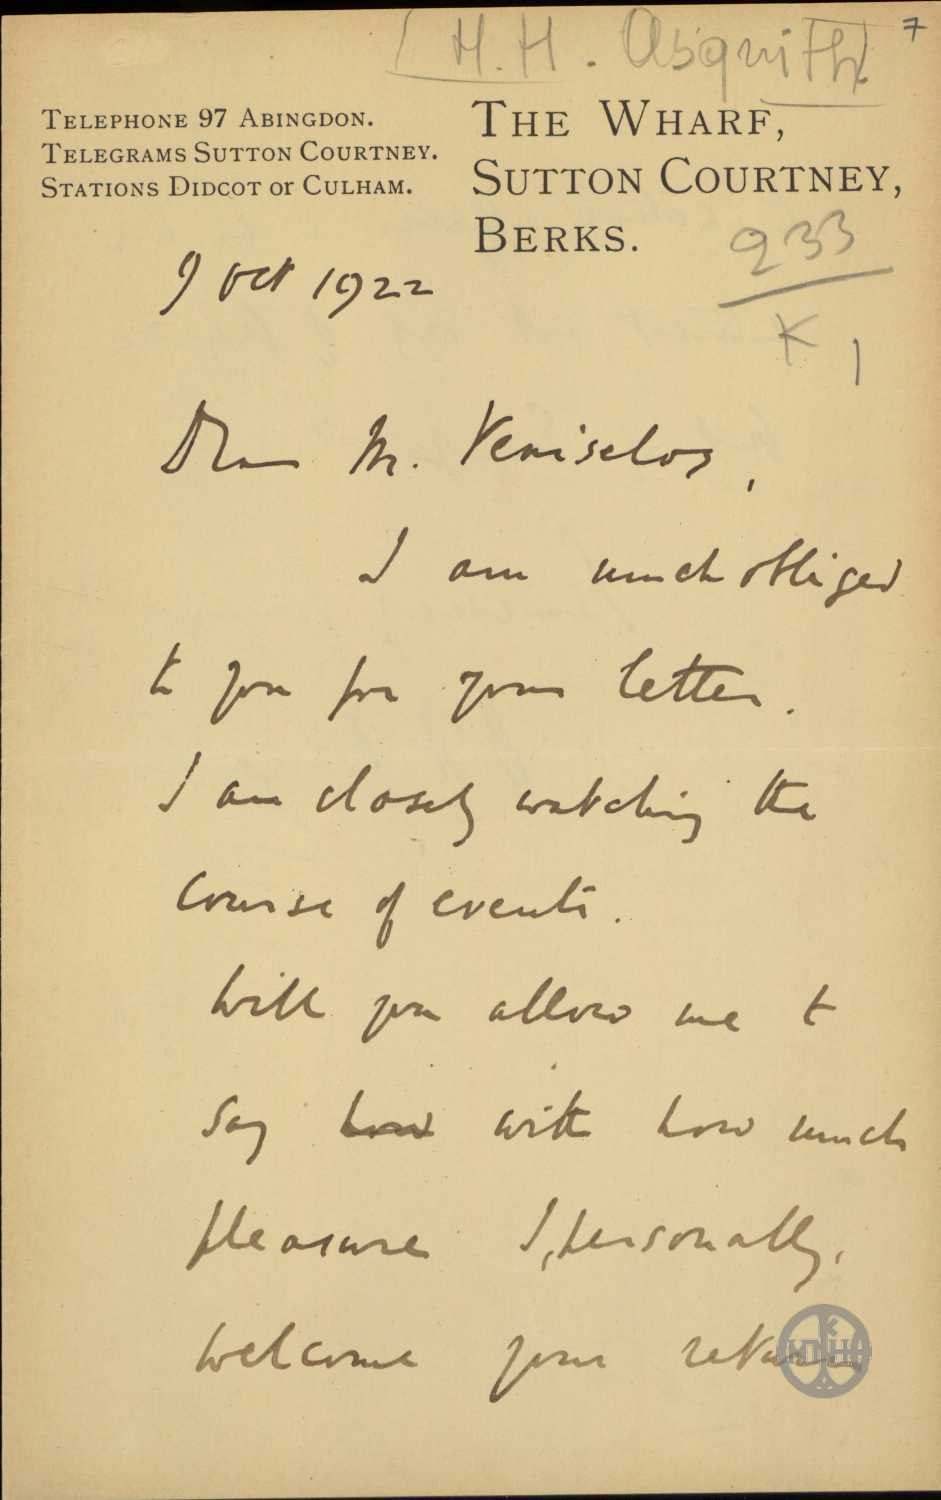 [H.H. Asquith]
7
TELEPHONE 97 ABINGDON.
TELEGRAMS SUTTON COURTNEY.
STATIONS DIDCOT OR CULHAM.
THE WHARF,
SUTTON COURTNEY,
BERKS.
233
K 1
9 Oct 1922
Dear Mr. Veniselos,
I am much obliged
to you for your letter.
I am closely watching the
course of events.
Will you allow me to
say how with how much
pleasure I, personally,
welcome your return